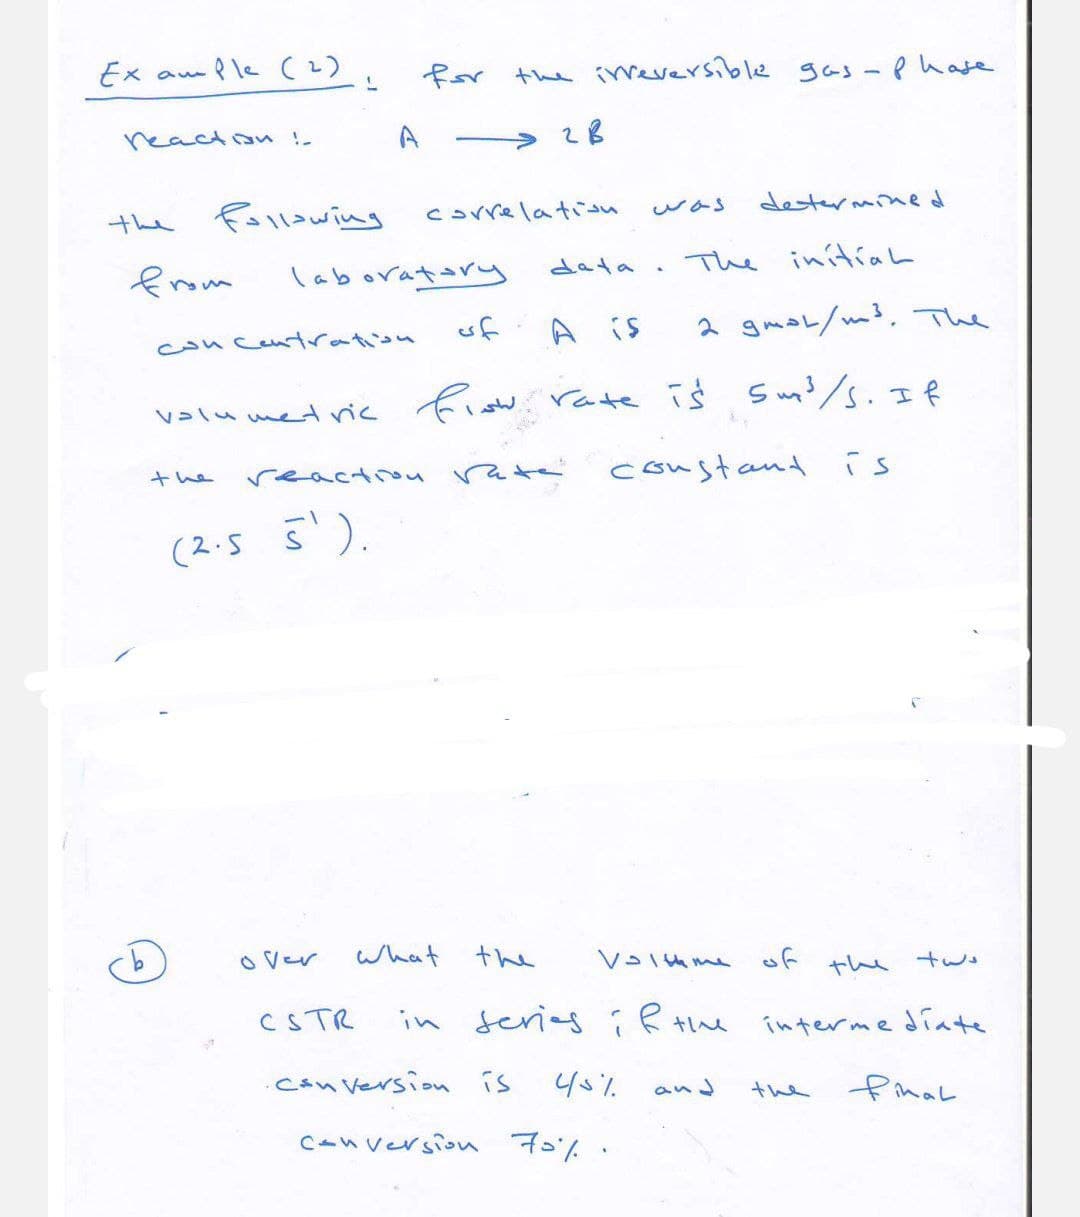 Example (2): for the irreversible gas-phase
reaction :- A → 2B
the following correlation was determined
from laboratory data. The initial
concentration of A is 2 gmol/m³. The
volumetric flow rate is 5 m³/s. If
the reaction rate constant is
(2.5 s⁻¹).
(b) over what the volume of the two
CSTR in series if the intermediate
conversion is 40% and the final
conversion 70%.